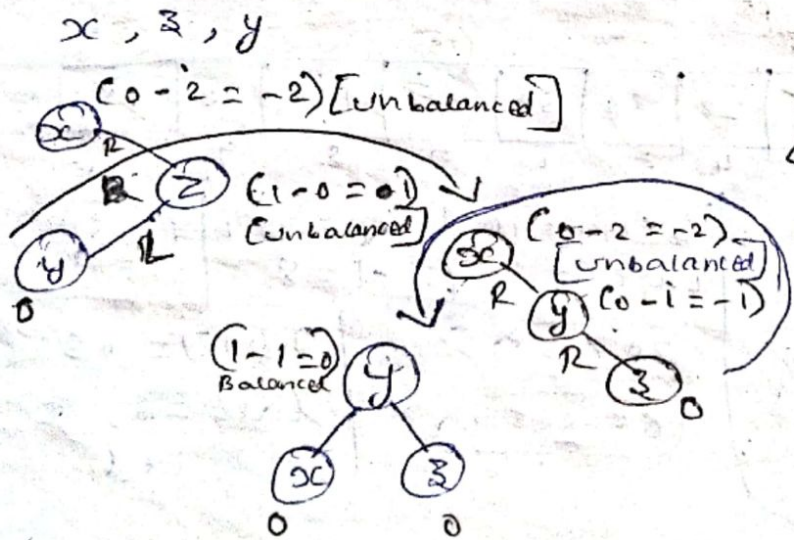 x, z, y
(0 - 2 = -2) [unbalanced]
x
R
R
z
(1 - 0 = 01)
[unbalanced]
L
y
0
x
(0 - 2 = -2)
[unbalanced]
R
y
(0 - 1 = -1)
R
z
0
(1 - 1 = 0)
Balanced
y
x
z
0
0